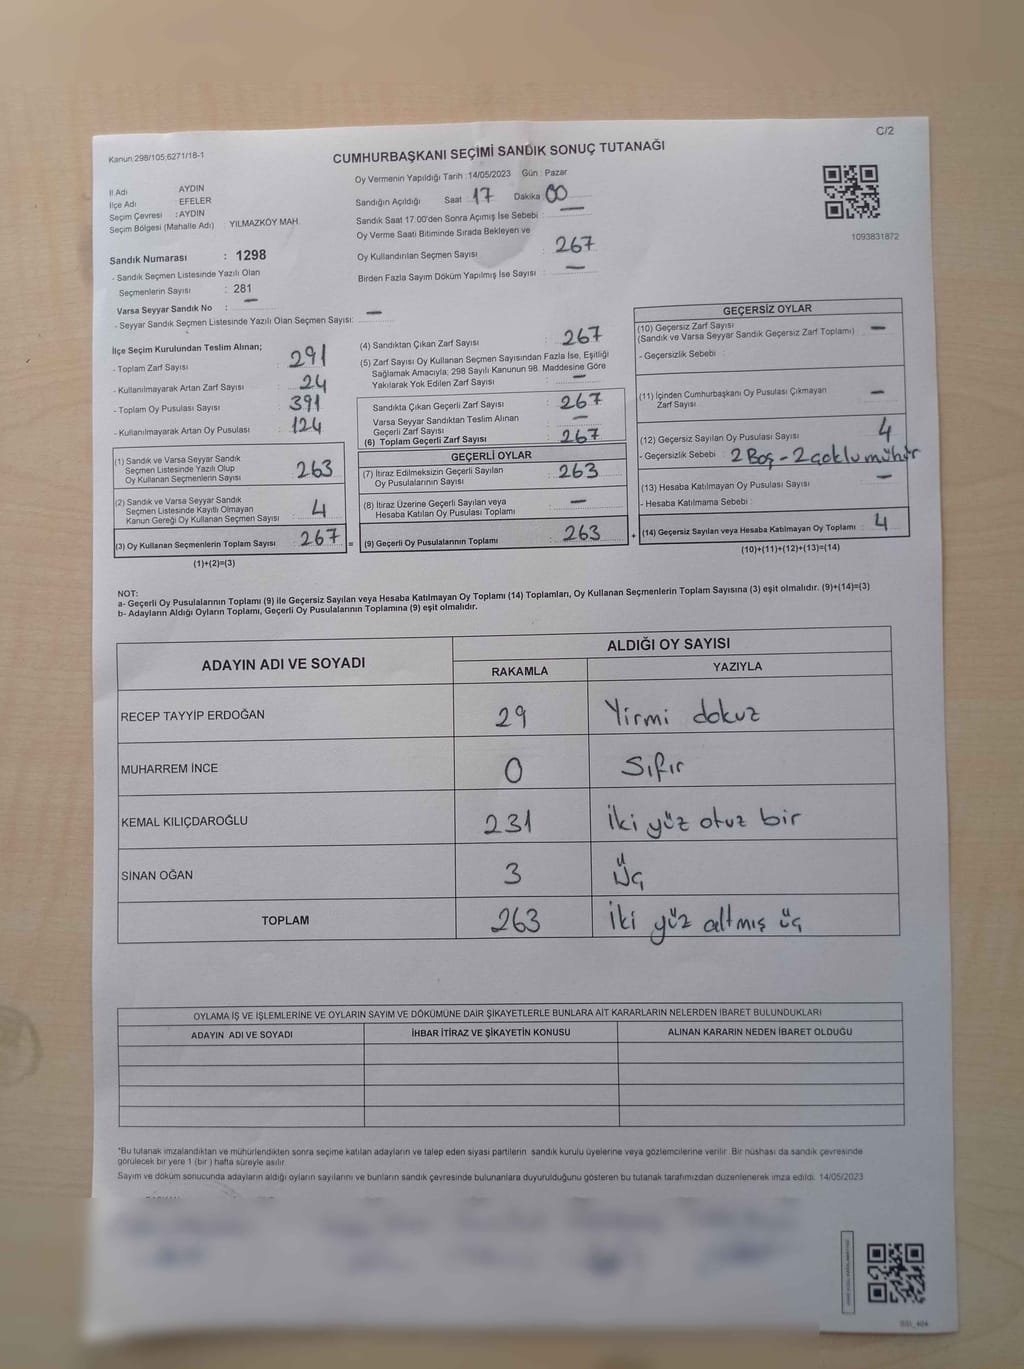 C/2
Kanun:298/105;6271/18-1
CUMHURBAŞKANI SEÇİMİ SANDIK SONUÇ TUTANAĞI
Oy Vermenin Yapıldığı Tarih : 14/05/2023 Gün : Pazar
İl Adı AYDIN
İlçe Adı EFELER
Seçim Çevresi : AYDIN
Seçim Bölgesi (Mahalle Adı) : YILMAZKÖY MAH.
Sandığın Açıldığı Saat 17 Dakika 00
Sandık Saat 17.00'den Sonra Açımış İse Sebebi : —
Oy Verme Saati Bitiminde Sırada Bekleyen ve
Oy Kullandırılan Seçmen Sayısı : 267
Birden Fazla Sayım Döküm Yapılmış İse Sayısı : —
1093831872
Sandık Numarası : 1298
- Sandık Seçmen Listesinde Yazılı Olan
Seçmenlerin Sayısı : 281
Varsa Seyyar Sandık No : —
- Seyyar Sandık Seçmen Listesinde Yazılı Olan Seçmen Sayısı: —
İlçe Seçim Kurulundan Teslim Alınan;
- Toplam Zarf Sayısı : 291
- Kullanılmayarak Artan Zarf Sayısı : 24
- Toplam Oy Pusulası Sayısı : 391
- Kullanılmayarak Artan Oy Pusulası : 124
(1) Sandık ve Varsa Seyyar Sandık
Seçmen Listesinde Yazılı Olup
Oy Kullanan Seçmenlerin Sayısı : 263
(2) Sandık ve Varsa Seyyar Sandık
Seçmen Listesinde Kayıtlı Olmayan
Kanun Gereği Oy Kullanan Seçmen Sayısı : 4
(3) Oy Kullanan Seçmenlerin Toplam Sayısı : 267 =
(1)+(2)=(3)
(4) Sandıktan Çıkan Zarf Sayısı : 267
(5) Zarf Sayısı Oy Kullanan Seçmen Sayısından Fazla İse, Eşitliği
Sağlamak Amacıyla; 298 Sayılı Kanunun 98. Maddesine Göre
Yakılarak Yok Edilen Zarf Sayısı : —
Sandıkta Çıkan Geçerli Zarf Sayısı : 267
Varsa Seyyar Sandıktan Teslim Alınan
Geçerli Zarf Sayısı : —
(6) Toplam Geçerli Zarf Sayısı : 267
GEÇERLİ OYLAR
(7) İtiraz Edilmeksizin Geçerli Sayılan
Oy Pusulalarının Sayısı : 263
(8) İtiraz Üzerine Geçerli Sayılan veya
Hesaba Katılan Oy Pusulası Toplamı : —
(9) Geçerli Oy Pusulalarının Toplamı : 263 +
GEÇERSİZ OYLAR
(10) Geçersiz Zarf Sayısı
(Sandık ve Varsa Seyyar Sandık Geçersiz Zarf Toplamı) : —
- Geçersizlik Sebebi :
(11) İçinden Cumhurbaşkanı Oy Pusulası Çıkmayan
Zarf Sayısı : —
(12) Geçersiz Sayılan Oy Pusulası Sayısı : 4
- Geçersizlik Sebebi : 2 Boş - 2 çoklu mühür
(13) Hesaba Katılmayan Oy Pusulası Sayısı : —
- Hesaba Katılmama Sebebi :
(14) Geçersiz Sayılan veya Hesaba Katılmayan Oy Toplamı : 4
(10)+(11)+(12)+(13)=(14)
NOT:
a- Geçerli Oy Pusulalarının Toplamı (9) ile Geçersiz Sayılan veya Hesaba Katılmayan Oy Toplamı (14) Toplamları, Oy Kullanan Seçmenlerin Toplam Sayısına (3) eşit olmalıdır. (9)+(14)=(3)
b- Adayların Aldığı Oyların Toplamı, Geçerli Oy Pusulalarının Toplamına (9) eşit olmalıdır.
ADAYIN ADI VE SOYADI ALDIĞI OY SAYISI
RAKAMLA YAZIYLA
RECEP TAYYİP ERDOĞAN 29 Yirmi dokuz
MUHARREM İNCE 0 Sıfır
KEMAL KILIÇDAROĞLU 231 İki yüz otuz bir
SİNAN OĞAN 3 Üç
TOPLAM 263 İki yüz altmış üç
OYLAMA İŞ VE İŞLEMLERİNE VE OYLARIN SAYIM VE DÖKÜMÜNE DAİR ŞİKAYETLERLE BUNLARA AİT KARARLARIN NELERDEN İBARET BULUNDUKLARI
ADAYIN ADI VE SOYADI İHBAR İTİRAZ VE ŞİKAYETİN KONUSU ALINAN KARARIN NEDEN İBARET OLDUĞU
*Bu tutanak imzalandıktan ve mühürlendikten sonra seçime katılan adayların ve talep eden siyasi partilerin sandık kurulu üyelerine veya gözlemcilerine verilir. Bir nüshası da sandık çevresinde
görülecek bir yere 1 (bir ) hafta süreyle asılır.
Sayım ve döküm sonucunda adayların aldığı oyların sayılarını ve bunların sandık çevresinde bulunanlara duyurulduğunu gösteren bu tutanak tarafımızdan düzenlenerek imza edildi. 14/05/2023